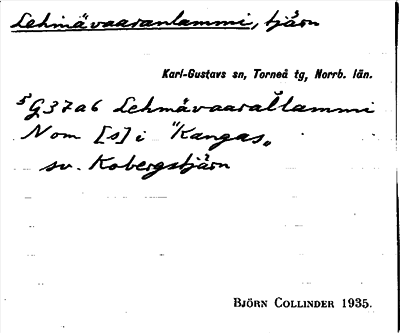 Lehmävaaranlammi, tjärn
Karl-Gustavs sn, Torneå tg, Norrb. län.
5G37a6 Lehmävaarãlammi
Nom [s] i "Kangas"
sv. Kobergstjärn
BJÖRN COLLINDER 1935.